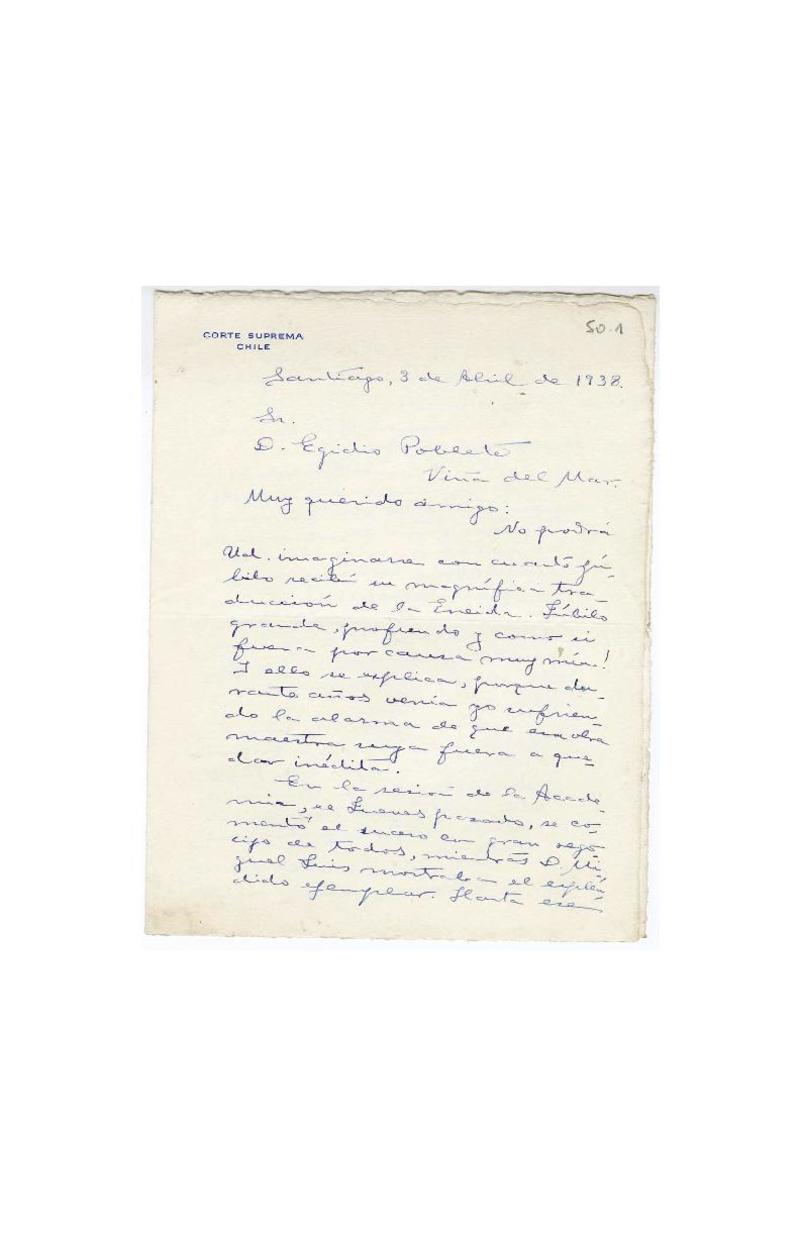 CORTE SUPREMA
CHILE
50.1
Santiago, 3 de Abril de 1938.
Sr.
D. Egidio Poblete
Viña del Mar.
Muy querido amigo:
No podrá
Ud. imaginarse con cuanto jú-
bilo recibí su magnífica tra-
ducción de la Eneida. Júbilo
grande, profundo y como si
fuera por causa muy mía!
I ello se explica, porque du-
rante años venía yo sufrien-
do la alarma de que esa obra
maestra suya fuera a que-
dar inédita.
En la sesión de la Acade-
mia, el Jueves pasado, se co-
mentó el suceso con gran rego-
cijo de todos, mientras D. Mi-
guel Luis mostraba el esplén-
dido ejemplar. Hasta ese